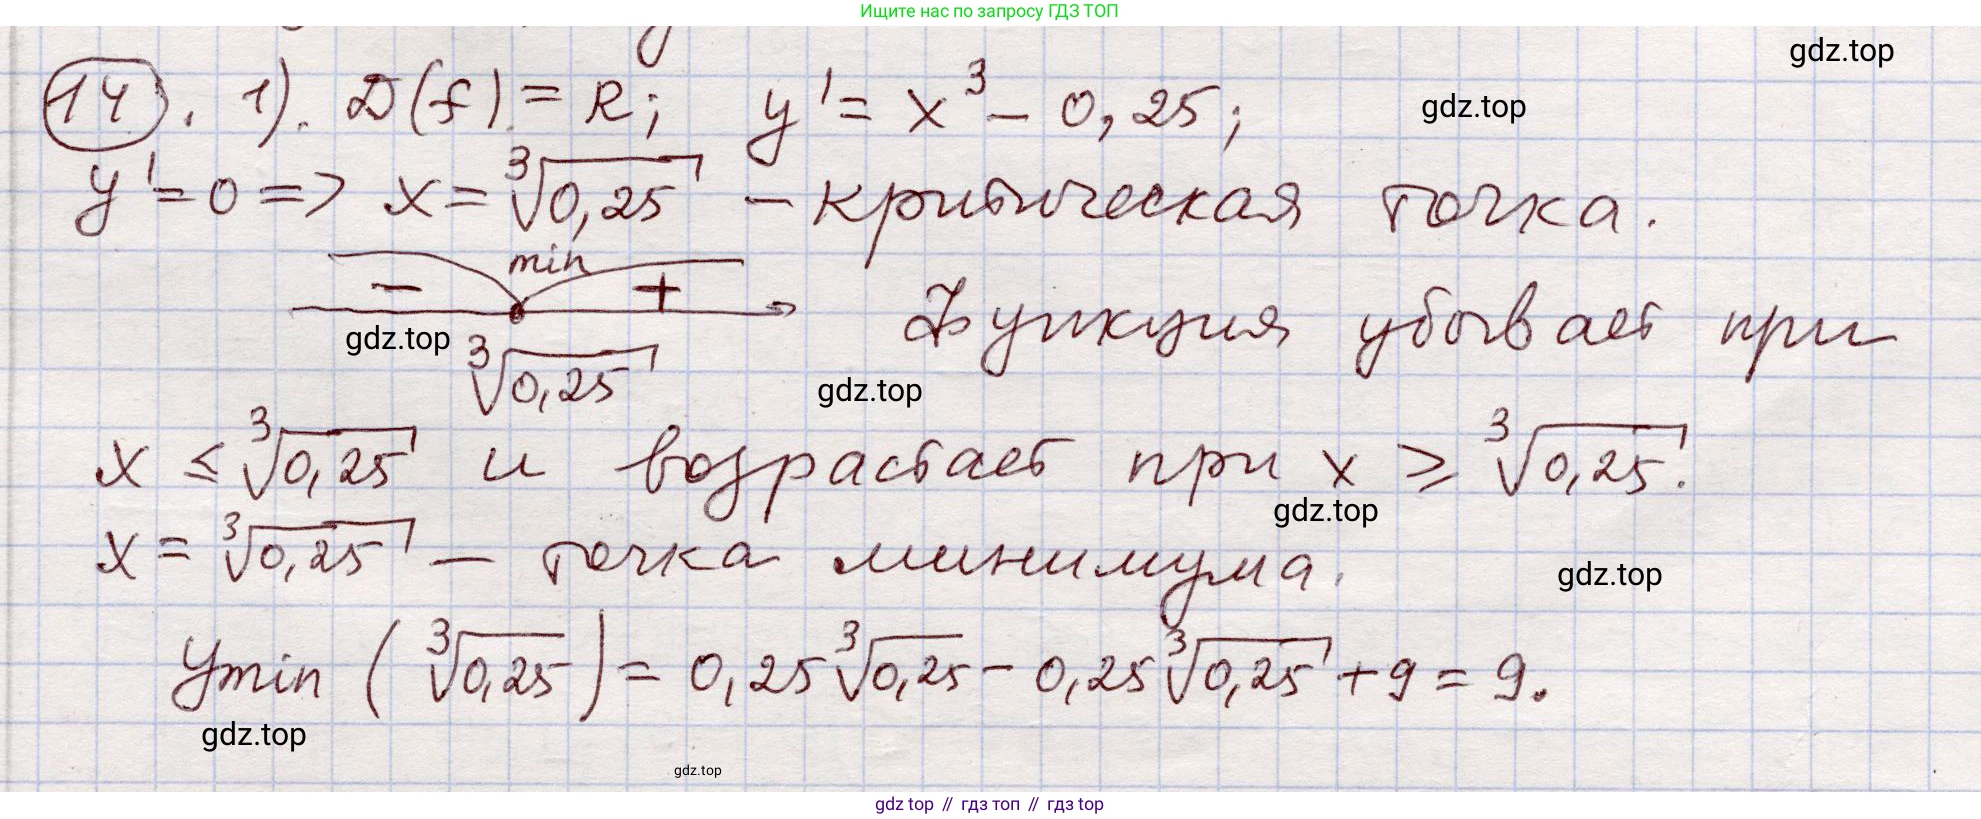 Ищите нас по запросу ГДЗ ТОП
gdz.top
14. 1). D(f) = R; y' = x³ - 0,25;
gdz.top
y' = 0 => x = ∛0,25 - критическая точка.
min
- +
Функция убывает при
gdz.top
∛0,25
gdz.top
x ≤ ∛0,25 и возрастает при x ≥ ∛0,25.
gdz.top
x = ∛0,25 - точка минимума.
gdz.top
ymin (∛0,25) = 0,25∛0,25 - 0,25∛0,25 + 9 = 9.
gdz.top
gdz.top
gdz top // гдз топ // гдз top